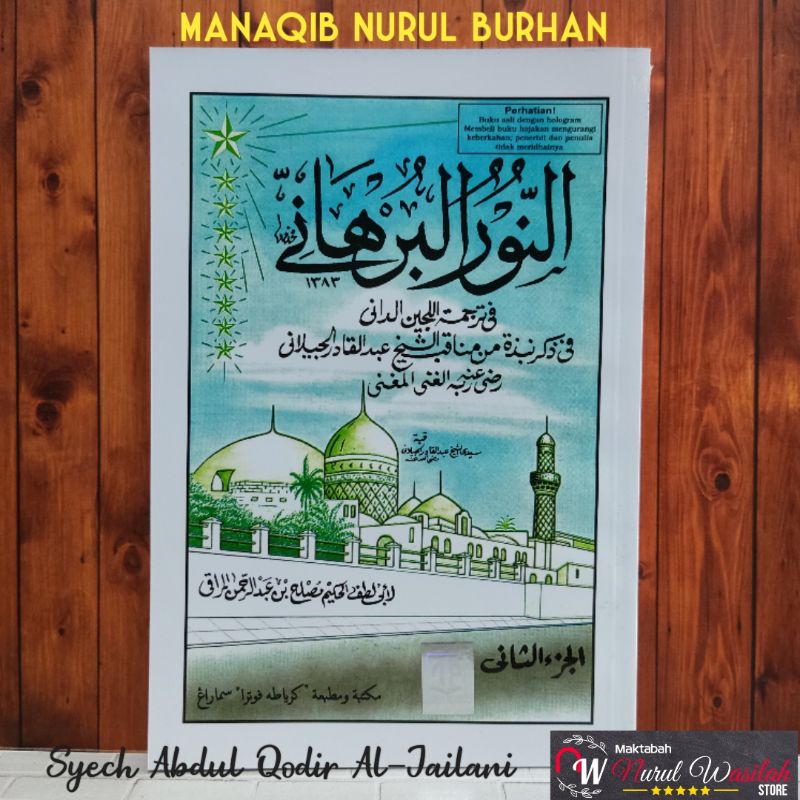 MANAQIB NURUL BURHAN
Perhatian!
Buku asli dengan hologram
Membeli buku bajakan mengurangi
keberkahan; penerbit dan penulis
tidak meridhainya
النُّوْرُ الْبُرْهَانِيّ
١٣٨٣
فى ترجمة اللجين الدانى
فى ذكر نبذة من مناقب الشيخ عبد القادر الجيلانى
رضى عنه ربه الغنى المغنى
قبة
سيدنا الشيخ عبد القادر الجيلانى
رضى الله عنه
لأبى لطف الحكيم مصلح بن عبد الرحمن المراقى
الجزء الثانى
مكتبة ومطبعة "كرياطه فوترا" سماراغ
Syech Abdul Qodir Al-Jailani
Maktabah
Nurul Wasilah
STORE